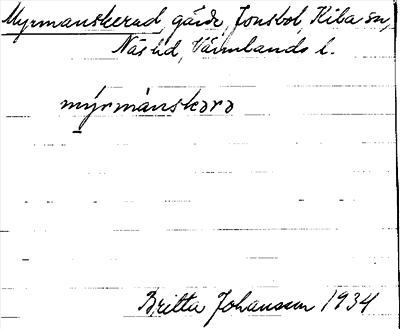 Myrmanskerud, gård, Jonsbol, Kila sn,
Näs hd, Värmlands l.
mýrmànskərə
Britta Johansson 1934